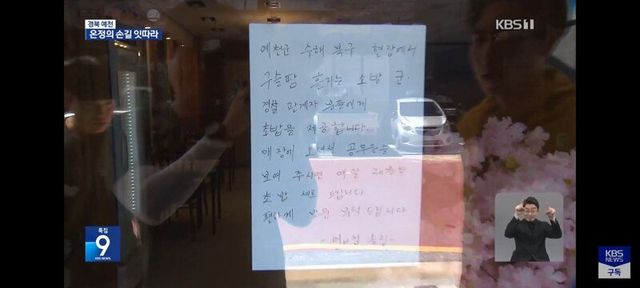 경북 예천
온정의 손길 잇따라
KBS1
예천군 수해 복구 현장에서
구슬땀 흘리는 소방 군.
경찰 관계자 분들에게
초밥을 제공합니다
매장에 오셔서 공무원증
보여 주시면
초밥 세트 드립니다
편하게 방문 부탁 드립니다
특집
9
KBS NEWS
KBS
NEWS
구독